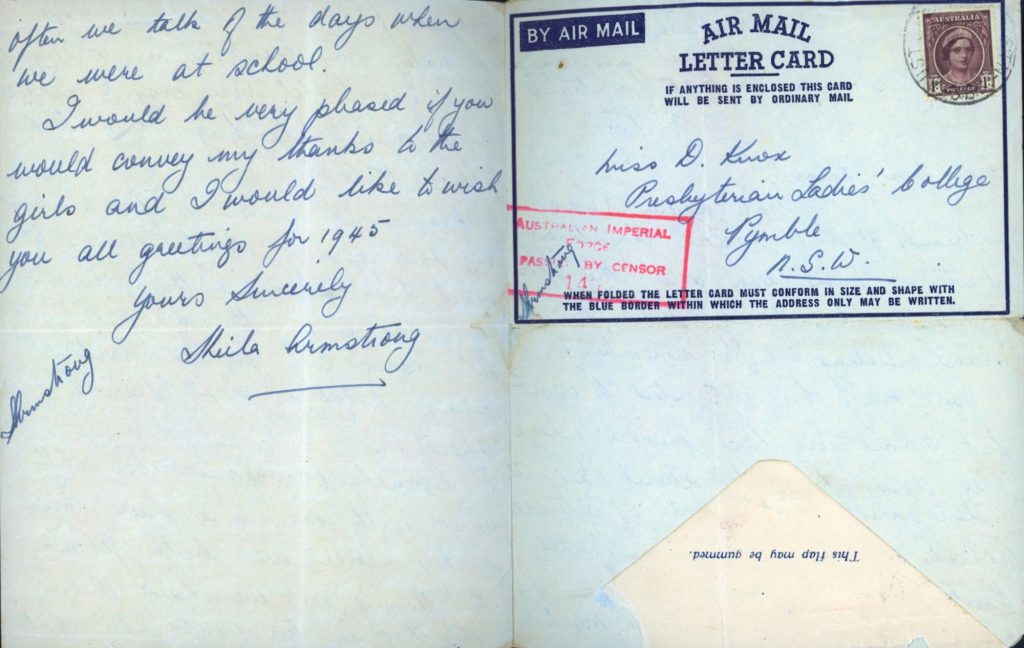 often we talk of the days when
we were at school.
I would be very phased if you
would convey my thanks to the
girls and I would like to wish
you all greetings for 1945
Yours Sincerily
Sheila Armstrong
SArmstrong
BY AIR MAIL
AIR MAIL
LETTER CARD
IF ANYTHING IS ENCLOSED THIS CARD
WILL BE SENT BY ORDINARY MAIL
AUSTRALIA
1D 1D
Miss D. Knox
Presbyterian Ladies' College
Pymble
N.S.W.
AUSTRALIAN IMPERIAL
FORCE
PASSED BY CENSOR
14
SArmstrong
WHEN FOLDED THE LETTER CARD MUST CONFORM IN SIZE AND SHAPE WITH
THE BLUE BORDER WITHIN WHICH THE ADDRESS ONLY MAY BE WRITTEN.
This flap may be gummed.